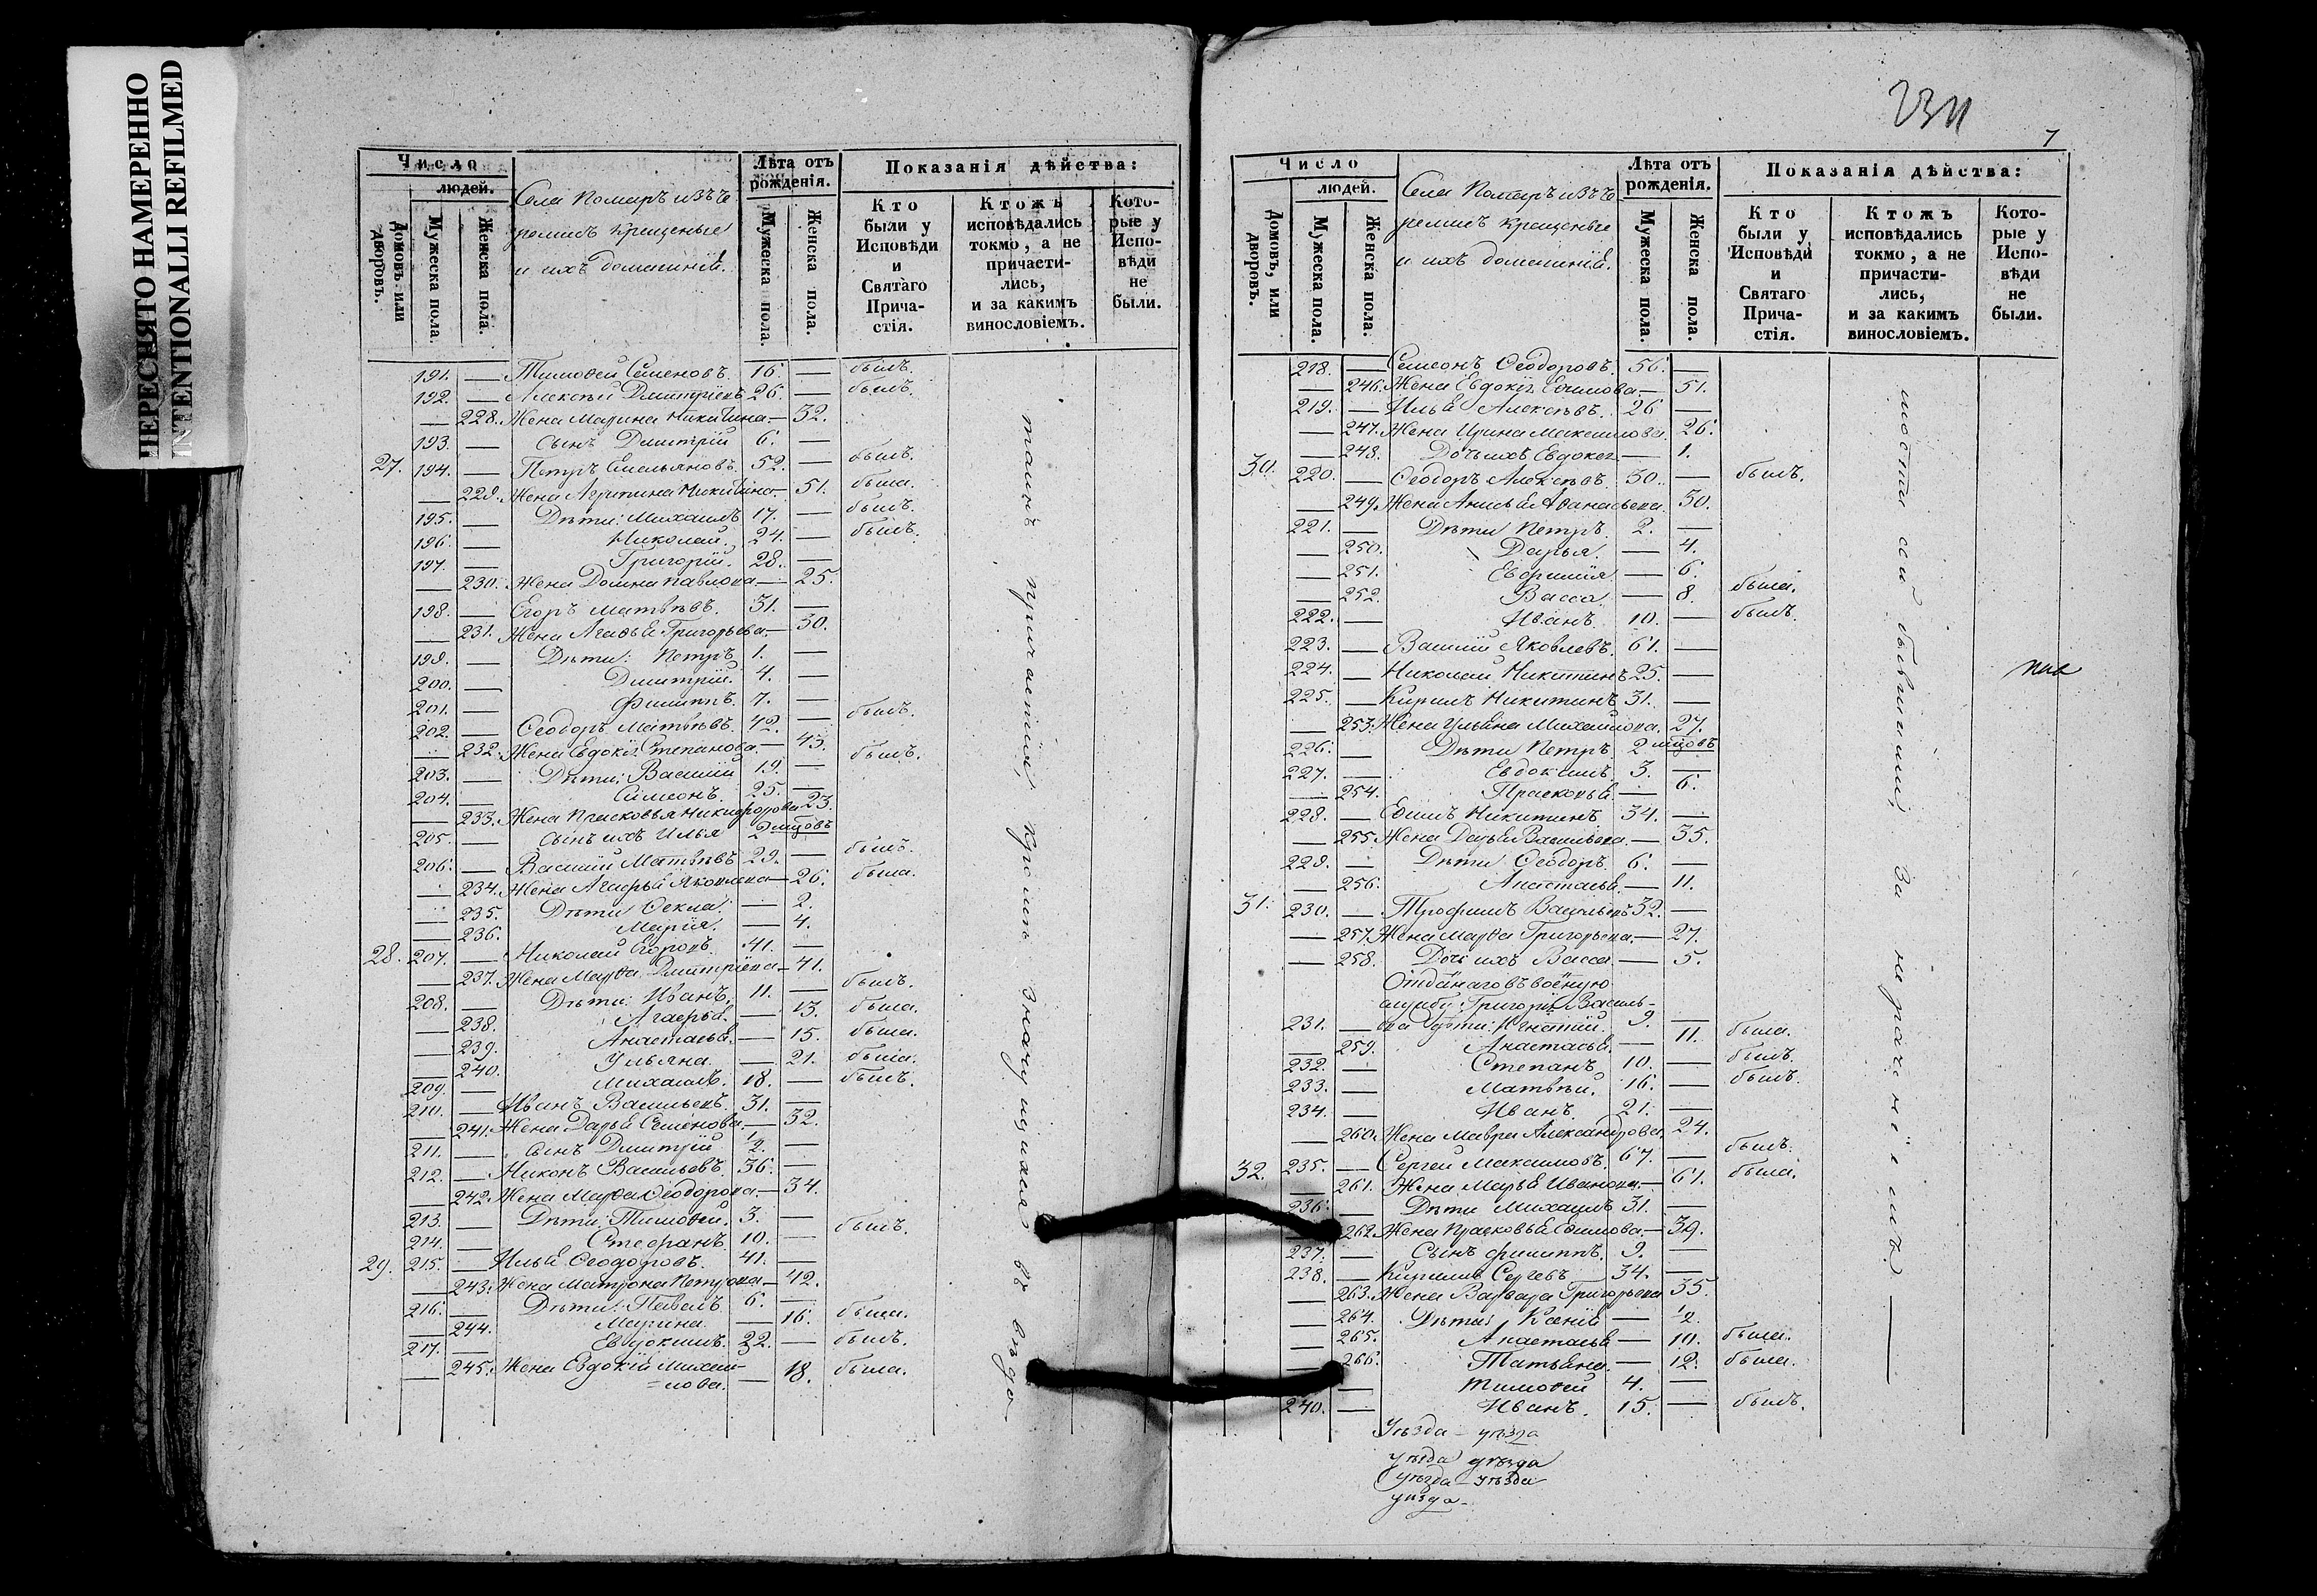 ПЕРЕСНЯТО НАМЕРЕННО
INTENTIONALLI REFILMED
Число
людей.
Домовъ или дворовъ.
Мужеска пола.
Женска пола.
Села Помаръ изъ че
ремисъ крещеные
и ихъ домашніе.
Лѣта отъ рожденія.
Мужеска пола.
Женска пола.
Показанія дѣйства:
Кто были у Исповѣди и Святаго Прича-стія.
Ктожъ исповѣдались токмо, а не причасти-лись, и за какимъ винословіемъ.
Кото-рые у Испо-вѣди не были.
191. — Тимофей Семеновъ. 16. — былъ.
192. — Алексѣй Дмитріевъ 26. — былъ.
— 228. Жена Марина Никитина — 32.
193. — сынъ Дмитрій 6. —
27. 194. — Петръ Емельяновъ. 52. — былъ.
— 229. Жена Агрипина Никитина — 51. была.
195. — Дѣти: Михаилъ 17. — былъ.
196. — Николай. 24. — былъ.
197. — Григорій. 28. —
— 230. Жена Домна Павлова — 25.
198. — Егоръ Матвѣевъ. 31. —
— 231. Жена Агафья Григорьева. — 30.
199. — Дѣти: Петръ 1. —
200. — Дмитрій. 4. —
201. — Филиппъ. 7. —
202. — Ѳеодоръ Матвѣевъ. 42. — былъ.
— 232. Жена Евдокія Степанова. — 43.
203. — Дѣти: Василій 19. — былъ.
204. — Симеонъ. 25. —
— 233. Жена Прасковья Никифорова 23.
205. — Сынъ ихъ Илья 2 мцовъ
206. — Василій Матвѣевъ 29. — былъ.
— 234. Жена Агафья Яковлева — 26. была.
— 235. Дѣти Ѳекла. — 2.
— 236. Марія. — 4.
28. 207. — Николай Егоровъ. 41. —
— 237. Жена Марѳа Дмитріева — 41.
208. — Дѣти: Иванъ. 11. — былъ.
— 238. Агафья. — 13. была.
— 239. Анастасья. — 15. была.
— 240. Ульяна. — 21. была.
209. — Михаилъ. 18. — былъ.
210. — Иванъ Васильевъ. 31. —
— 241. Жена Дарья Семенова. — 32.
211. — сынъ Дмитрій ½. —
212. — Никонъ Васильевъ. 36. —
— 242. Жена Марѳа Ѳеодорова. — 34.
213. — Дѣти: Тимофей. 3. —
214. — Стефанъ. 10. — былъ.
29. 215. — Илья Ѳеодоровъ. 41. —
— 243. Жена Матрона Петрова — 42.
216. — Дѣти: Павелъ 6. —
— 244. Марина. — 16. была.
217. — Евдокимъ. 22. — былъ.
— 245. Жена Евдокія Михай-
=лова. — 18. была.
таинъ причастія, кромѣ значущихся въ вѣдо-
7
Число
людей.
Домовъ, или дворовъ.
Мужеска пола.
Женска пола.
Села Помаръ изъ че
ремисъ крещеные
и ихъ домашніе.
Лѣта отъ рожденія.
Мужеска пола.
Женска пола.
Показанія дѣйства:
Кто были у Исповѣди и Святаго Прича-стія.
Ктожъ исповѣдались токмо, а не причасти-лись, и за какимъ винословіемъ.
Кото-рые у Испо-вѣди не были.
218. — Симеонъ Ѳеодоровъ. 56. —
— 246. Жена Евдокія Ефимова — 51.
219. — Илья Алексѣевъ. 26 —
— 247. Жена Ирина Максимова. 26.
— 248. Дочь ихъ Евдокія — 1.
30. 220. — Ѳеодоръ Алексѣевъ. 30. — былъ.
— 249. Жена Анисья Афанасьева. 30.
221. — Дѣти Петръ. 2. —
— 250. Дарья. — 4.
— 251. Евфимія. — 6.
— 252. Васса. — 8. была.
222. — Иванъ. 10. — былъ.
223. — Василій Яковлевъ. 61. —
224. — Николай Никитинъ 25. —
225. — Кирилъ Никитинъ 31. —
— 253. Жена Ульяна Михайлова. 27.
226. — Дѣти Петръ. 2 мцовъ
227. — Евдокимъ. 3. —
— 254. Прасковья. — 6.
228. — Ефимъ Никитинъ 34. —
— 255. Жена Дарья Васильева. — 35.
229. — Дѣти Ѳеодоръ. 6. —
— 256. Анастасья. — 11.
31. 230. — Трофимъ Васильевъ 32. —
— 257. Жена Марѳа Григорьева. — 27.
— 258. Дочь ихъ Васса. — 5.
Отданаго въ военую
службу: Григорія Василь-
231. — ева дѣти: Игнатій. 9. —
— 259. Анастасья. — 11. была.
232. — Степанъ. 10. — былъ.
233. — Матвѣй. 16. — былъ.
234. — Иванъ. 21. —
— 260. Жена Мавра Александрова. 24.
32. 235. — Сергей Максимовъ. 67. — былъ.
— 261. Жена Марья Иванова. — 61. была.
236. — Дѣти Михаилъ 31. —
262. Жена Прасковья Ефимова. — 39.
237. — Сынъ Филиппъ. 9. —
238. — Кирилъ Сергѣевъ 34. —
— 263. Жена Варвара Григорьева 35.
— 264. Дѣти: Ксенія — ½.
— 265. Анастасья — 10. была.
— 266. Татьяна. — 12. была.
— Тимофей 4. —
240. — Иванъ. 15. — былъ.
мости сей бывшими, за нераченіемъ.
Уѣзда — уѣзда
уѣзда уѣзда
уѣзда — уѣзда
уѣзда —